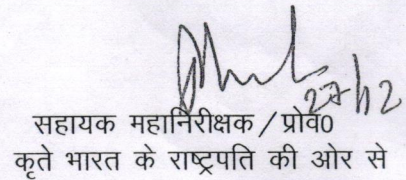 27/12
सहायक महानिरीक्षक / प्रोव0
कृते भारत के राष्ट्रपति की ओर से